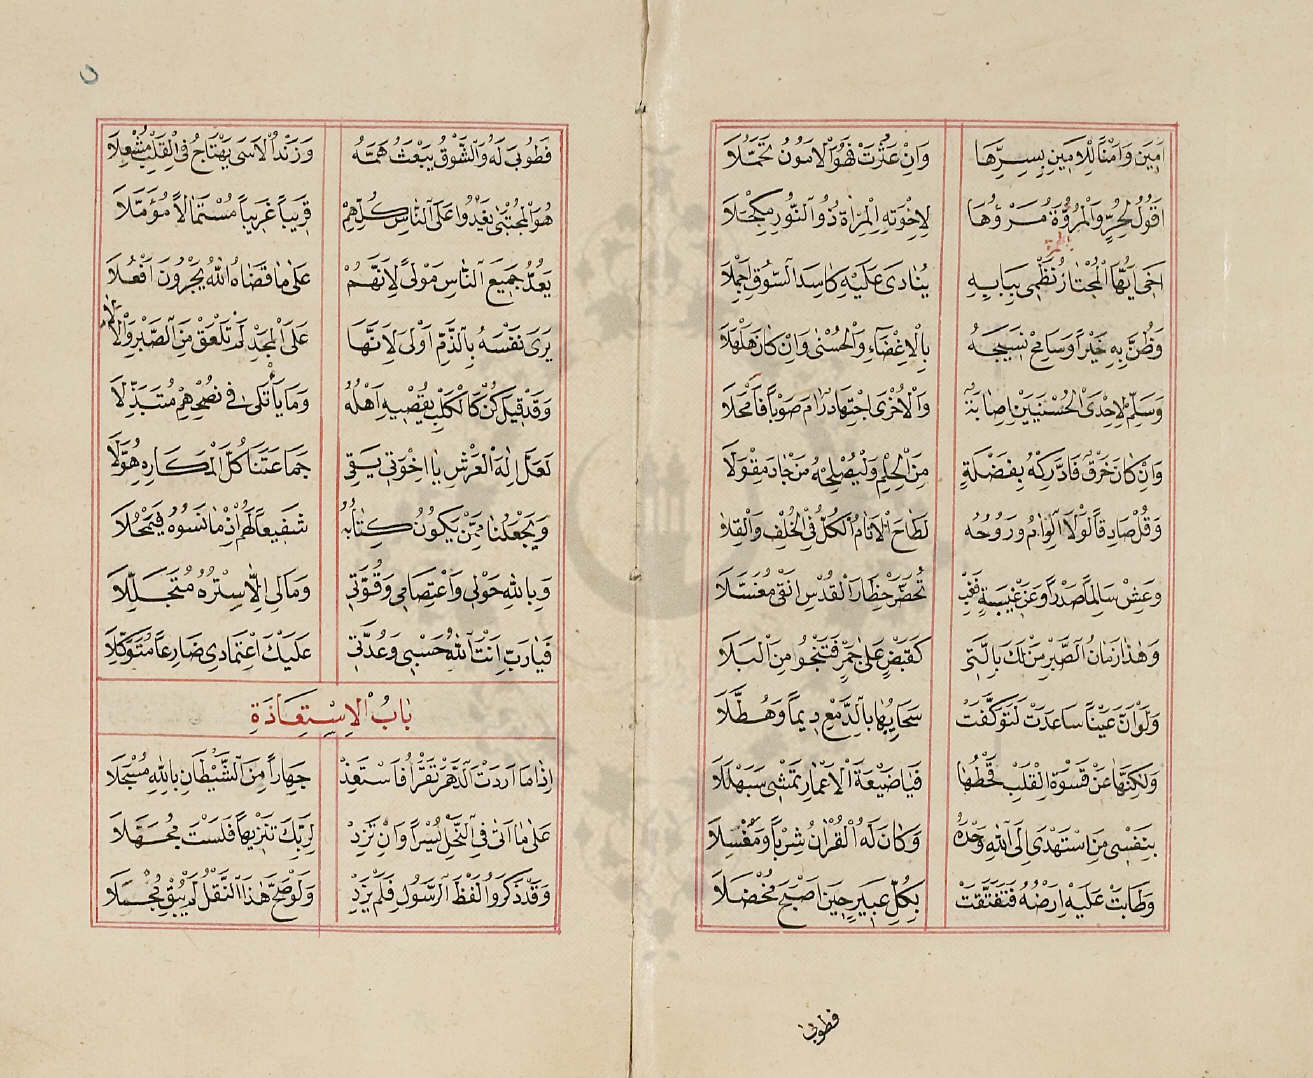 اَمِينٍ وَاَمْنًا لِلْاَمِينِ بِسِرِّهَا وَاِنْ عَثَرَتْ فَهُوَ الْاَمُونُ تَحَمُّلَا
اَقُولُ لِحُرٍّ وَالْمُرُوَّةُ مَرْؤُهَا لِاِخْوَتِهِ الْمِرْاٰةُ ذُو النُّورِ مِكْحَلَا
اَخِي اَيُّهَا الْمُجْتَازُ نَظْمِي بِبَابِهِ يُنَادَى عَلَيْهِ كَاسِدَ السُّوقِ اَجْمِلَا
وَظُنَّ بِهِ خَيْرًا وَسَامِحْ نَسِيجَهُ بِالْاِغْضَاءِ وَالْحُسْنٰى وَاِنْ كَانَ هَلْهَلَا
وَسَلِّمْ لِاِحْدَى الْحُسْنَيَيْنِ اِصَابَةٌ وَالْاُخْرٰى اجْتِهَادٌ رَامَ صَوْبًا فَاَمْحَلَا
وَاِنْ كَانَ خَرْقٌ فَادَّرِكْهُ بِفَضْلَةٍ مِنَ الْحِلْمِ وَلْيُصْلِحْهُ مَنْ جَادَ مِقْوَلَا
وَقُلْ صَادِقًا لَوْلَا الْوِئَامُ وَرُوحُهُ لَطَاحَ الْاَنَامُ الْكُلُّ فِي الْخُلْفِ وَالْقِلَا
وَعِشْ سَالِمًا صَدْرًا وَعَنْ غِيبَةٍ فَغِبْ تُحَضَّرْ حِظَارَ الْقُدْسِ اَنْقٰى مُغَسَّلَا
وَهٰذَا زَمَانُ الصَّبْرِ مَنْ لَكَ بِالَّتِي كَقَبْضٍ عَلٰى جَمْرٍ فَتَنْجُو مِنَ الْبَلَا
وَلَوْ اَنَّ عَيْنًا سَاعَدَتْ لَتَوَكَّفَتْ سَحَايِبُهَا بِالدَّمْعِ دِيمًا وَهُطَّلَا
وَلٰكِنَّهَا عَنْ قَسْوَةِ الْقَلْبِ قَحْطُهَا فَيَا ضَيْعَةَ الْاَعْمَارِ تَمْشِي سَبَهْلَلَا
بِنَفْسِي مَنِ اسْتَهْدَى اِلَى اللّٰهِ وَحْدَهُ وَكَانَ لَهُ الْقُرْاٰنُ شِرْبًا وَمَغْسِلَا
وَطَابَتْ عَلَيْهِ اَرْضُهُ فَتَفَتَّقَتْ بِكُلِّ عَبِيرٍ حِينَ اَصْبَحَ مُخْضَلَا
فطوبى
فَطُوبَى لَهُ وَالشَّوْقُ يَبْعَثُ هَمَّهُ وَزَنْدُ الْاَسَى يَهْتَاجُ فِي الْقَلْبِ مُشْعِلَا
هُوَ الْمُجْتَبٰى يَغْدُوا عَلَى النَّاسِ كُلِّهِمْ قَرِيبًا غَرِيبًا مُسْتَمَالًا مُؤَمَّلَا
يَعُدُّ جَمِيعَ النَّاسِ مَوْلًى لِاَنَّهُمْ عَلٰى مَا قَضَاهُ اللّٰهُ يُجْرُونَ اَفْعُلَا
يَرَى نَفْسَهُ بِالذَّمِّ اَوْلٰى لِاَنَّهَا عَلَى الْمَجْدِ لَمْ تَلْعَقْ مِنَ الصَّبْرِ وَالْاَلَا
وَقَدْ قِيلَ كُنْ كَالْكَلْبِ يُقْصِيهِ اَهْلُهُ وَمَا يَأْتَلِى فِي نُصْحِهِمْ مُتَبَذِّلَا
لَعَلَّ اِلٰهَ الْعَرْشِ يَا اِخْوَتِي يَقِي جَمَاعَتَنَا كُلَّ الْمَكَارِهِ هُوَّلَا
وَيَجْعَلُنَا مِمَّنْ يَكُونُ كِتَابُهُ شَفِيعًا لَهُمْ اِذْ مَا نَسُوهُ فَيَمْحُلَا
وَبِاللّٰهِ حَوْلِي وَاعْتِصَامِي وَقُوَّتِي وَمَا لِي اِلَّا سِتْرُهُ مُتَجَلِّلَا
فَيَا رَبِّ اَنْتَ اللّٰهُ حَسْبِي وَعُدَّتِي عَلَيْكَ اعْتِمَادِي ضَارِعًا مُتَوَكِّلَا
بَابُ الْاِسْتِعَاذَةِ
اِذَا مَا اَرَدْتَ الدَّهْرَ تَقْرَأُ فَاسْتَعِذْ جِهَارًا مِنَ الشَّيْطَانِ بِاللّٰهِ مُسْجَلَا
عَلٰى مَا اَتٰى فِي النَّحْلِ يُسْرًا وَاِنْ تَزِدْ لِرَبِّكَ تَنْزِيهًا فَلَسْتَ مُجَهَّلَا
وَقَدْ ذَكَرُوا لَفْظَ الرَّسُولِ فَلَمْ يَزِدْ وَلَوْ صَحَّ هٰذَا النَّقْلُ لَمْ يُبْقِ مُجْمَلَا